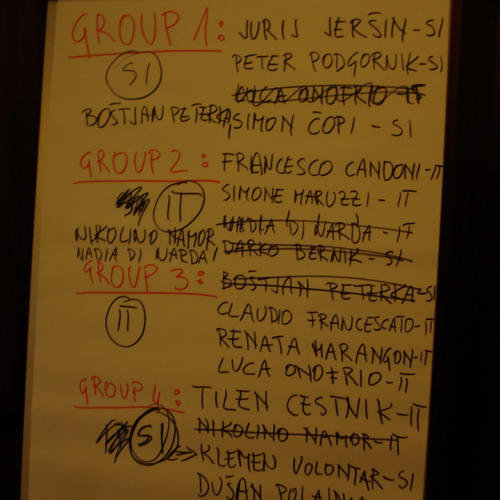 GROUP 1: JURIJ JERŠIN-SI
SI PETER PODGORNIK-SI
LUCA ONOFRIO - IT
BOŠTJAN PETERKA, SIMON ČOPI - SI
GROUP 2: FRANCESCO CANDONI-IT
IT SIMONE MARUZZI - IT
NADIA DI NARDA - IT
NIKOLINO NAMOR, DARKO BERNIK - SI
NADIA DI NARDA'
GROUP 3: BOŠTJAN PETERKA-SI
IT CLAUDIO FRANCESCATO-IT
RENATA MARANGON-IT
LUCA ONOFRIO-IT
GROUP 4: TILEN CESTNIK-IT
SI NIKOLINO NAMOR-IT
KLEMEN VOLONTAR-SI
DUŠAN